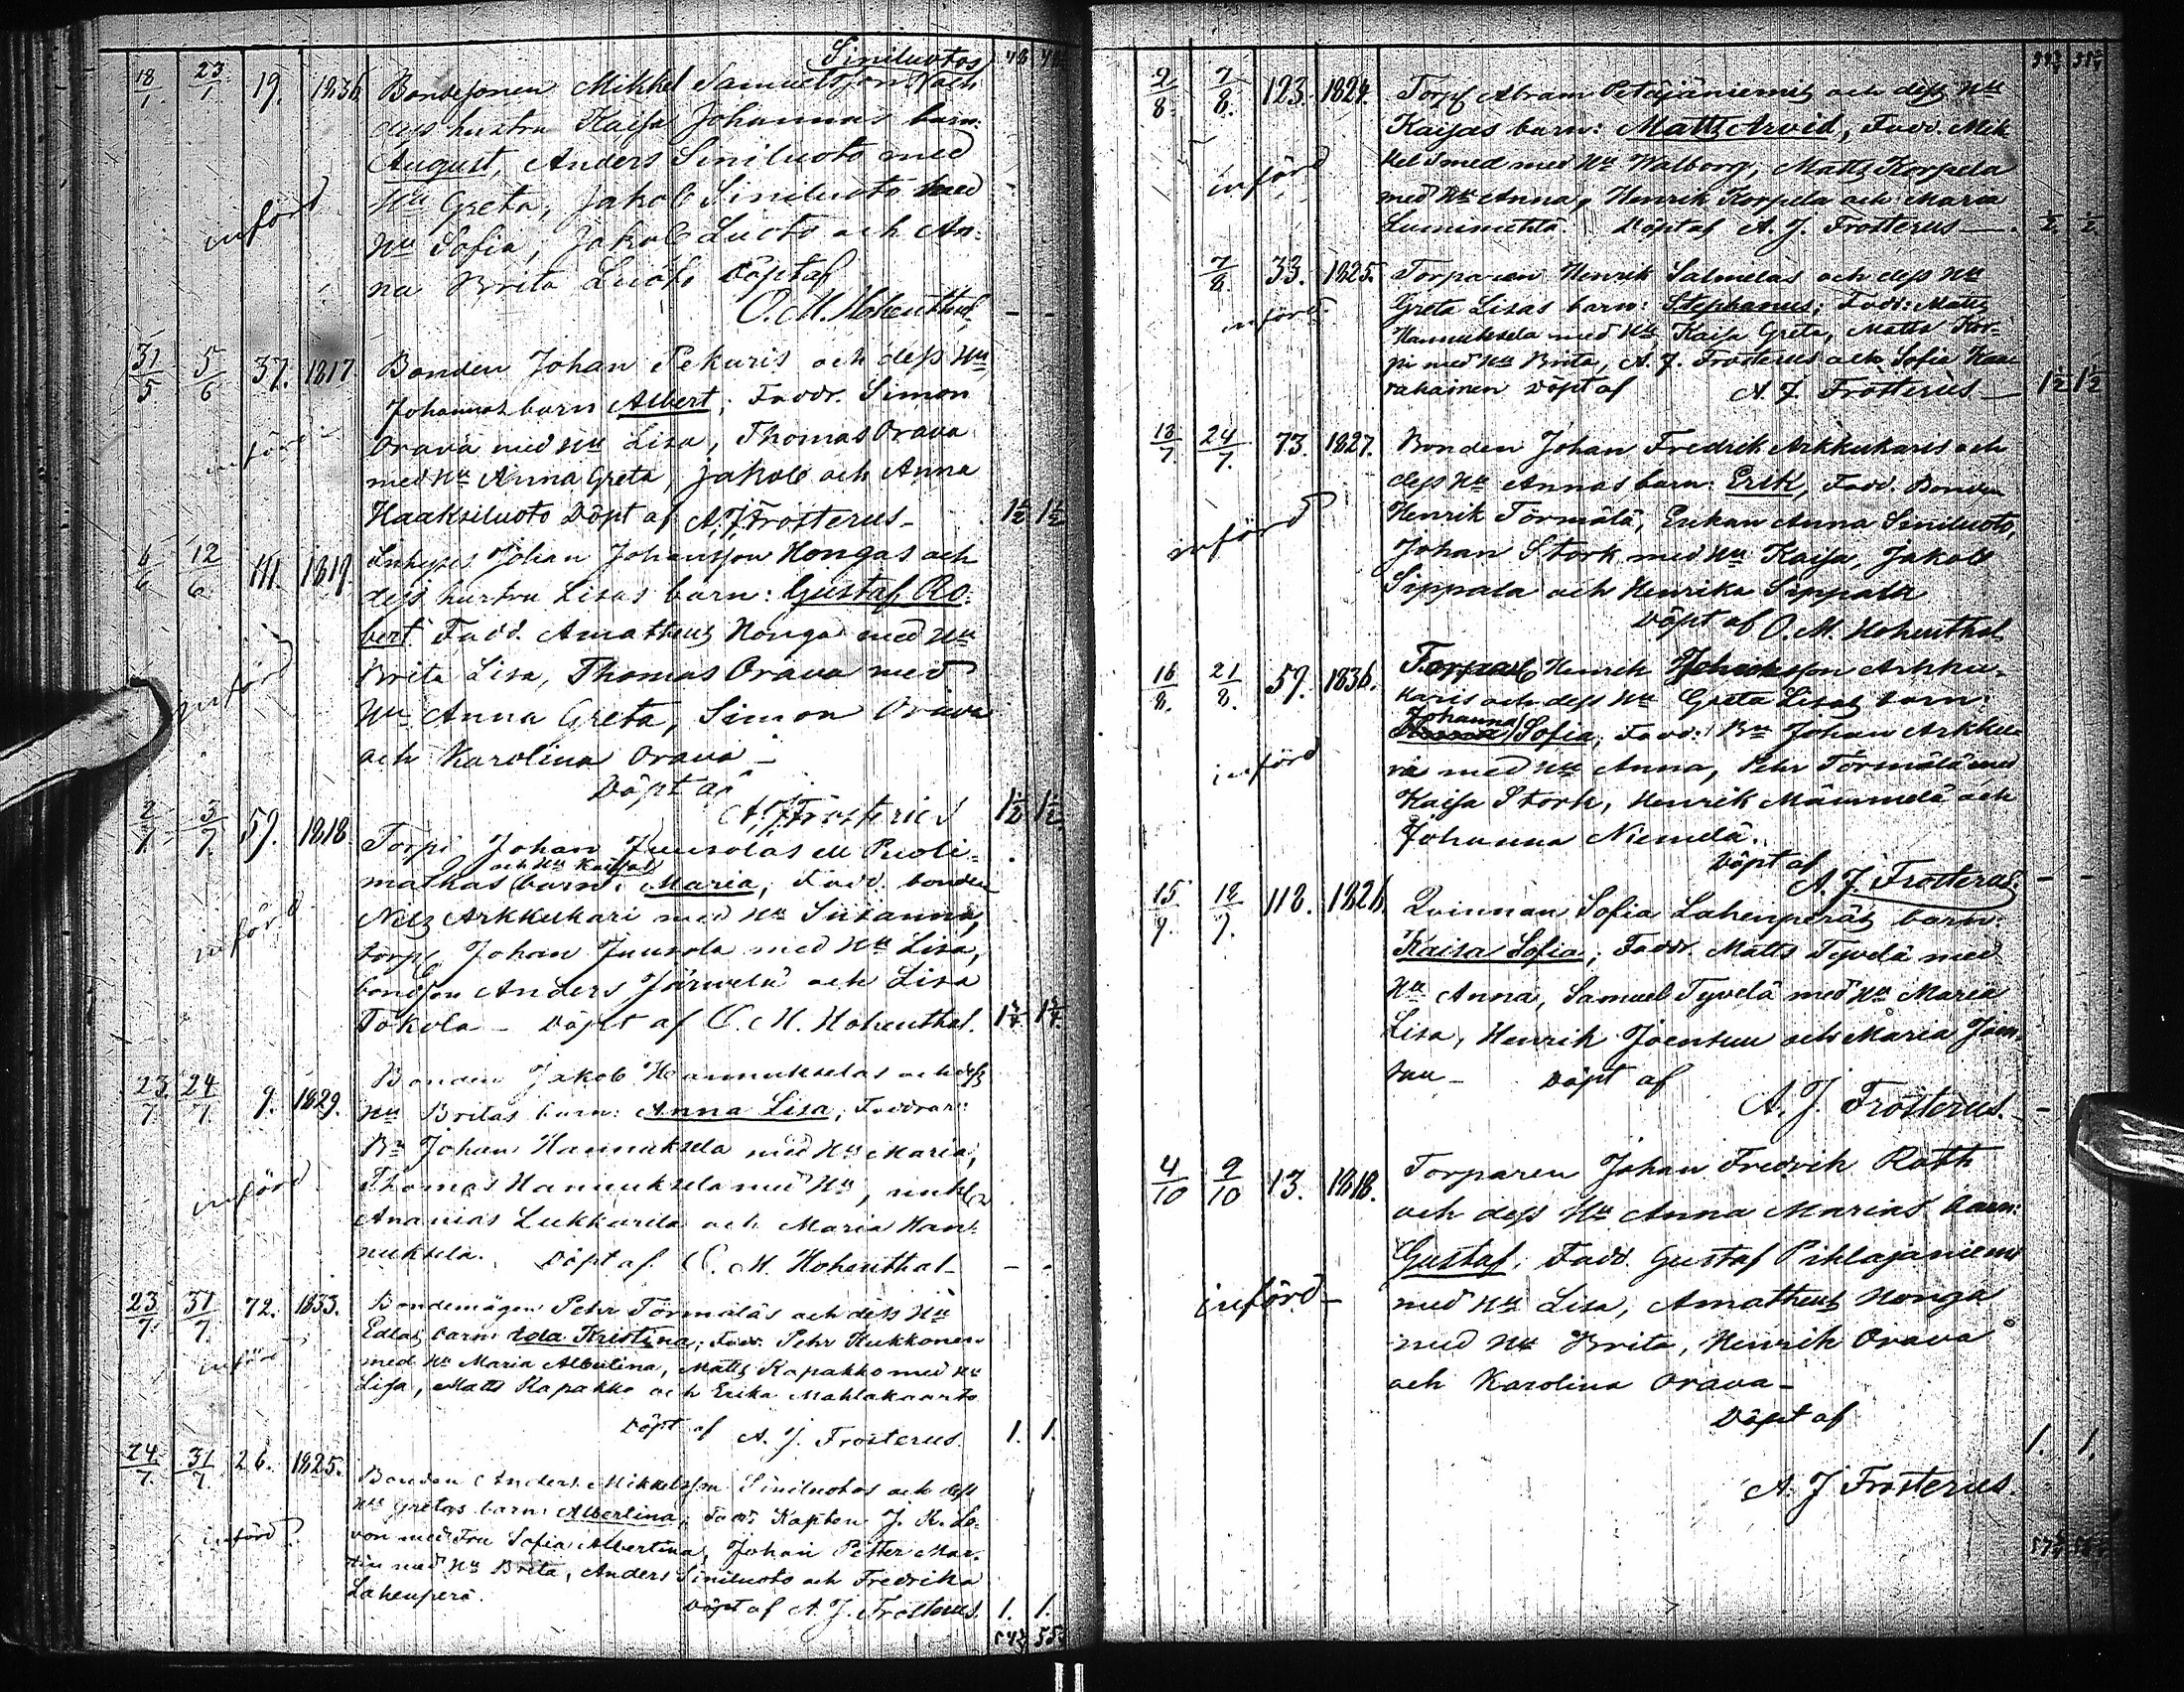 Siniluotos
18/1. 23/1 19. 1836 Bondesonen Mikkel Samuelsson och
dess hustru Kaisa Johannas barn:
August, Anders Siniluoto med
Hu Greta, Jakob Siniluoto med
införd
Hu Sofia, Jakob Luoto och An-
na Brita Luoto Döpt af
O. M. Hohenthal
31/5 5/6 37. 1817 Bonden Johan Pekuris och dess Hu
Johannas barn Albert; Faddr. Simon
Orava med Hu Lisa, Thomas Orava
införd
med Hu Anna Greta, Jakob och Anna
Haaksiluoto Döpt af A. J. Frosterus - 1½ 1½
6/6 12/6 111. 1819. Inhyses Johan Johansson Hongas och
dess hustru Lisas barn: Gustaf Ro-
bert Fadd. Amatheus Honga med Hu
Brita Lisa, Thomas Orava med
införd
Hu Anna Greta, Simon Orava
och Karolina Orava -
Döpt af
A. J. Frosterus 1½ 1½
2/7. 3/7. 59. 1818. Torp. Johan Juusolas
och Hu Kaisas
barn: Maria, Fadd. bonden
Nils Arkkukari med Hu Susanna,
införd
torp. Johan Juusola med Hu Lisa,
bondson Anders Järvelä och Lisa
Tokola - Döpt af O. M. Hohenthal.
23/7. 24/7. 9. 1829. Bonden Jakob Hannukselas och dess
Hu Britas barn: Anna Lisa, Faddrar:
Bn Johan Hannuksela med Hu Maria,
införd
Thomas Hannuksela med Hu,
Ananias Lukkarila och Maria Han-
nuksela. Döpt af O. M. Hohenthal -
23/7. 31/7. 72. 1833. Bondemågen Pehr Törmäläs och dess Hu
Edlas barn Ida Kristina; Fadd. Pehr Hukkonen
införd
med Hu Maria Albertina, Matts Rapakko med Hu
Lisa, Matts Rapakko och Erika Mahlakaarto
Döpt af A. J. Frosterus. 1. 1.
24/7. 31/7. 26. 1825. Bonden Anders Mikkelsson Siniluotos och dess
Hu Gretas barn: Albertina, Fadd. Kapten J. K. Lo-
införd
von med Fru Sofia Albertina, Johan Petter Mar-
tin med Hu Brita, Anders Siniluoto och Fredrika
Lahenperä. Döpt af A. J. Frosterus. 1. 1.
2/8. 7/8. 123. 1824. Torp. Abram Petäjäniemis och dess Hu
Kaisas barn: Matts Arvid, Fadd. Mik-
kel Smed med Hu Walborg, Matts Korpela
införd
med Hu Anna, Henrik Korpela och Maria
Lumimehtä. Döpt af A. J. Frosterus - ½ ½
7/8 33. 1825. Torparen Henrik Salmelas och dess Hu
Greta Lisas barn: Stephanus; Fadd: Matts
införd
Hannuksela med Hu Kaisa Greta, Matts Kor-
pi med Hu Brita, A. J. Frosterus och Sofia Kau-
rahainen Döpt af A. J. Frosterus - 1½ 1½
18/7 24/7. 73. 1827. Bonden Johan Fredrik Arkkukaris och
dess Hu Annas barn: Erik, Fadd. Bonden
Henrik Törmälä, Enkan Anna Siniluoto,
införd
Johan Stork med Hu Kaisa, Jakob
Sippala och Henrika Sippala
Döpt af O. M. Hohenthal
16/8. 21/8. 59. 1836. Henrik Arkku-
karis och dess Hu Greta Lisas barn:
Johanna
Sofia, Fadd: Bn Johan Arkkuka-
ri med Hu Anna, Pehr Törmälä med
införd
Kaisa Stork, Henrik Mämmelä och
Johanna Niemelä.
Döpt af
A. J. Frosterus. - -
15/9. 18/9. 118. 1826. Qvinnan Sofia Lahenperäs barn:
Kaisa Sofia; Faddr. Matts Tyvelä med
Hu Anna, Samuel Tyvelä med Hu Maria
Lisa, Henrik Joensuu och Maria Joen-
suu - Döpt af
A. J. Frosterus. -
4/10 9/10 13. 1818. Torparen Johan Fredrik Roth
och dess Hu Anna Marias barn:
Gustaf, Fadd. Gustaf Pihlajaniemi
införd -
med Hu Lisa, Amatheus Honga
med Hu Brita, Henrik Orava
och Karolina Orava -
Döpt af
1. 1.
A. J. Frosterus.